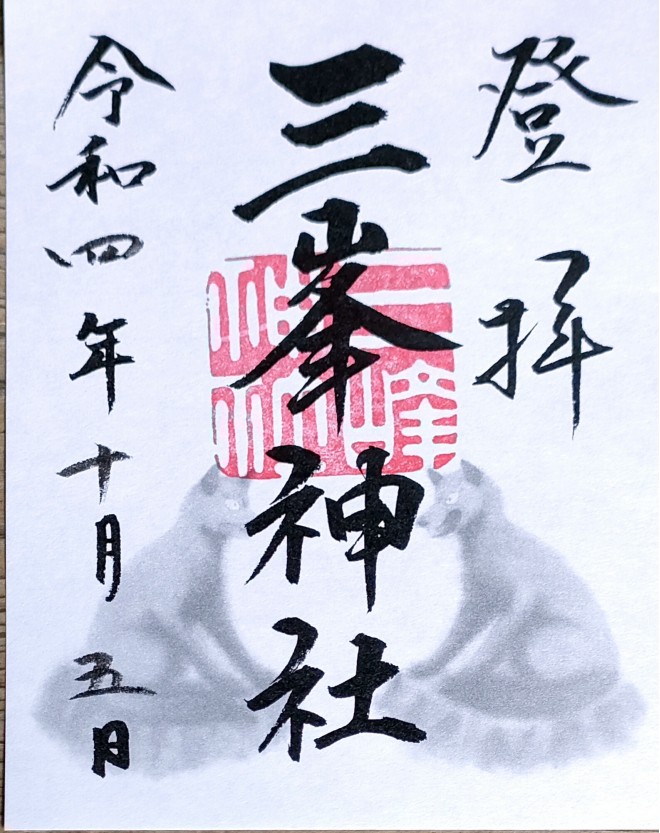 登拝
三峯神社
令和四年十月五日